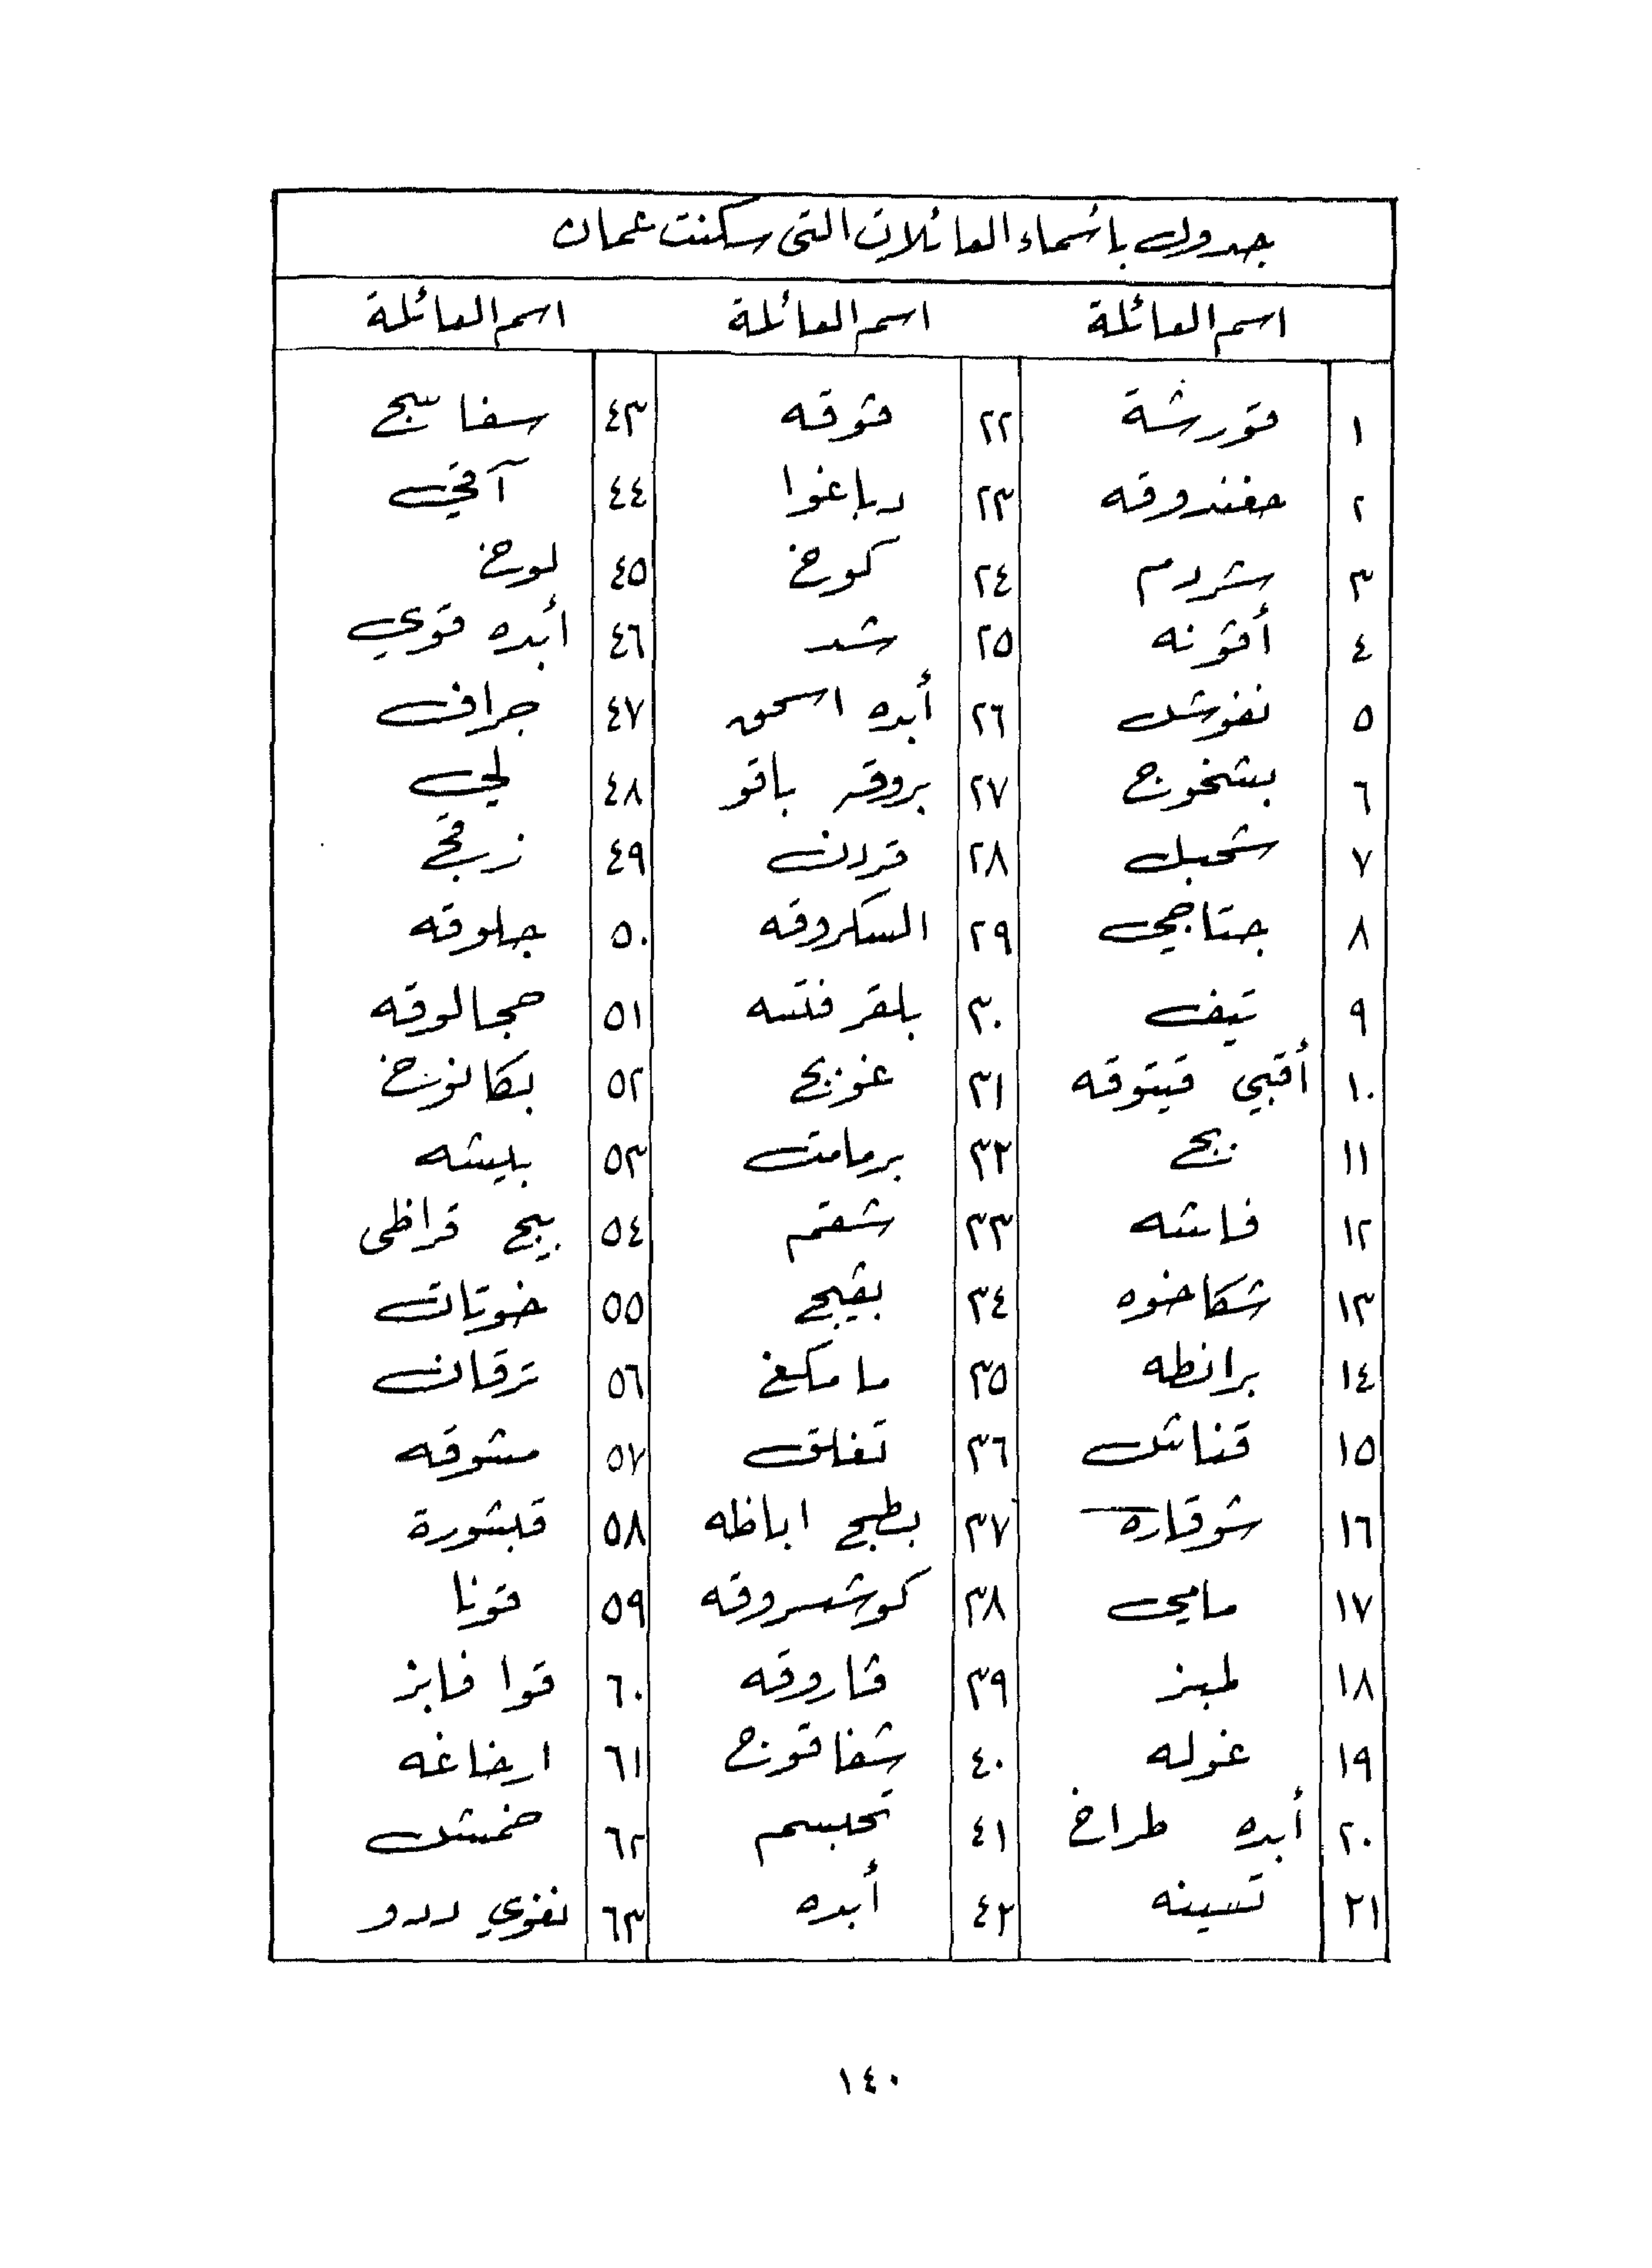 جدول باسماء العائلات التى سكنت عمان
اسم العائلة اسم العائلة اسم العائلة
١ قورشة ٢٢ قوقه ٤٣ سفا بيج
٢ حغندوقه ٢٣ دباغوا ٤٤ آقي
٣ شردم ٢٤ كورخ ٤٥ لورخ
٤ أقونه ٢٥ شد ٤٦ أبده قوي
٥ نغوشك ٢٦ أبده اسحق ٤٧ جران
٦ بشخورج ٢٧ بروقه باقو ٤٨ لجي
٧ شحبل ٢٨ قردن ٤٩
٨ جتاجي ٢٩ السكروقه ٥٠ جلوقه
٩ تيف ٣٠ بلقر فتسه ٥١ حجالوقه
١٠ أقبي قيتوقه ٣١ غونج ٥٢ بكانورخ
١١ ٣٢ برمامت ٥٣ بليشه
١٢ فاشه ٣٣ شقم ٥٤ بيج قراظى
١٣ شكاخوه ٣٤ بقيج ٥٥ خوتات
١٤ برانطه ٣٥ مامكغ ٥٦ ترقان
١٥ قناشك ٣٦ تغلق ٥٧ مشوقه
١٦ شوقاره ٣٧ بطبج اباظه ٥٨ قبشورة
١٧ مامى ٣٨ كوشسروقه ٥٩ قونا
١٨ لمبز ٣٩ قاروقه ٦٠ قوا فابز
١٩ غوله ٤٠ شغاقوج ٦١ ارخاغه
٢٠ أبده طراخ ٤١ تحبسم ٦٢ خمشك
٢١ تسينه ٤٢ أبده ٦٣ نغوي ددو
١٤٠